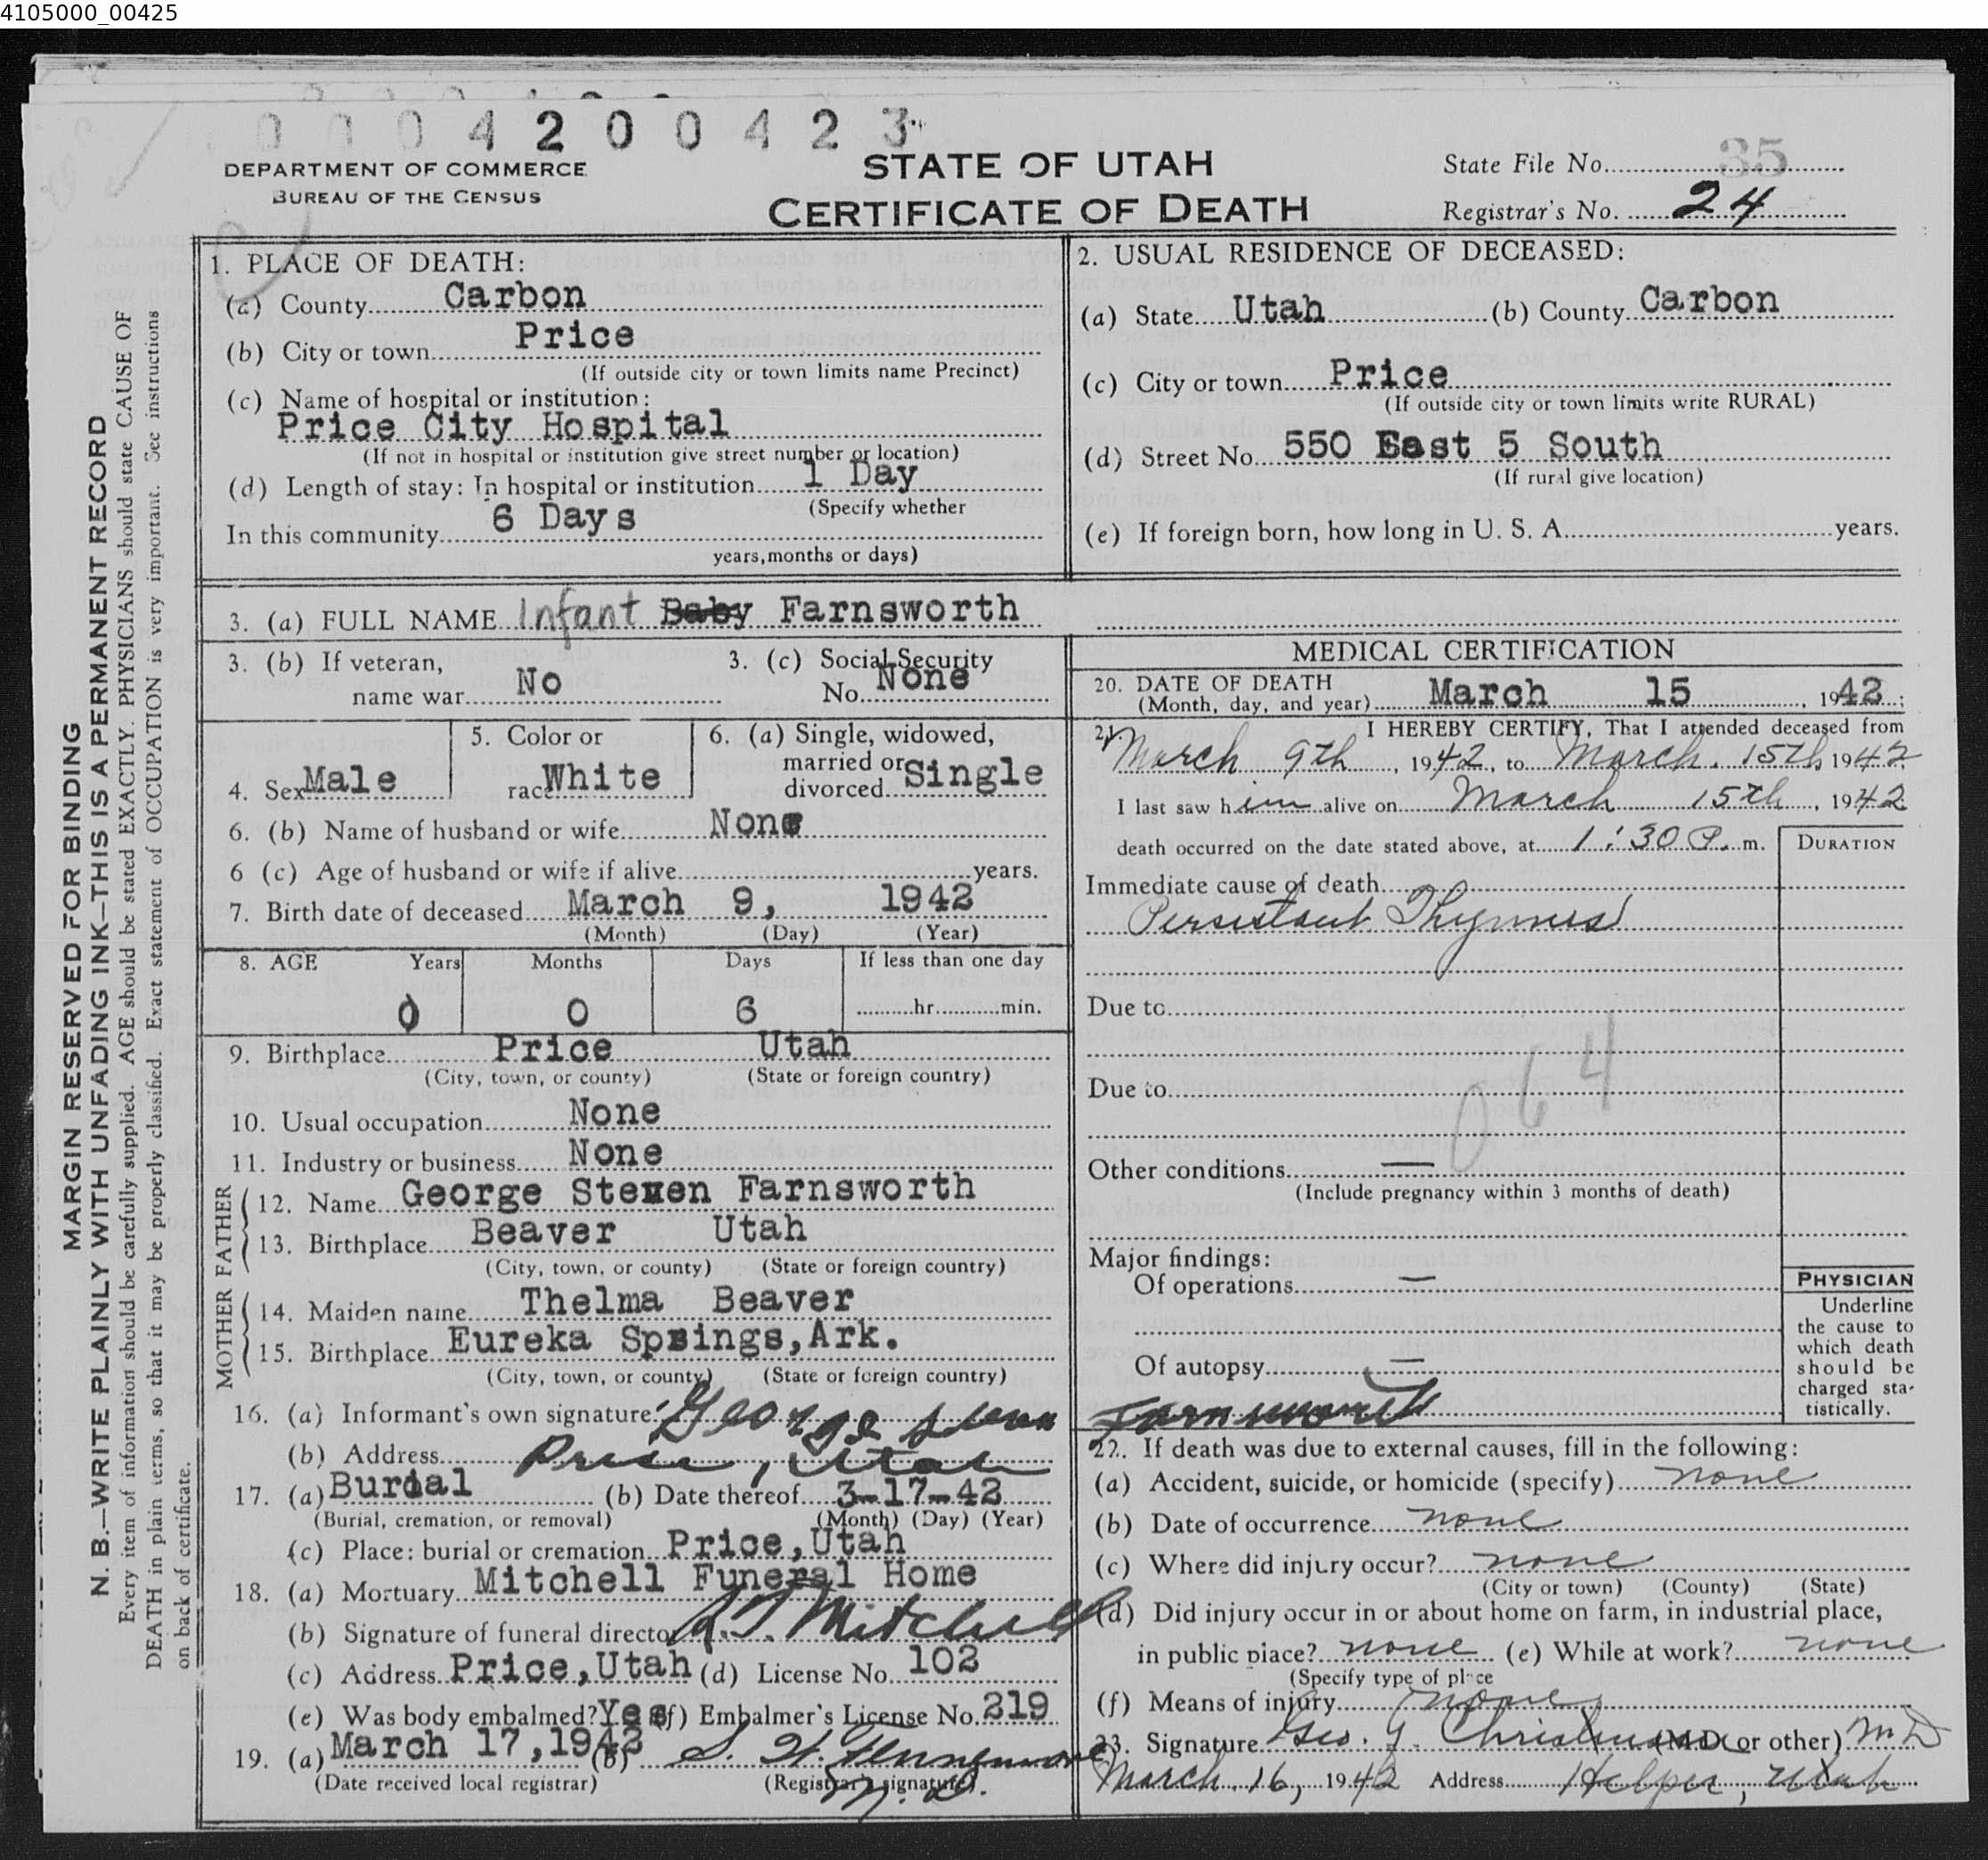 4105000_00425
0004200423
DEPARTMENT OF COMMERCE
BUREAU OF THE CENSUS
STATE OF UTAH
CERTIFICATE OF DEATH
State File No. 35
Registrar's No. 24
MARGIN RESERVED FOR BINDING
N. B.—WRITE PLAINLY WITH UNFADING INK—THIS IS A PERMANENT RECORD
Every item of information should be carefully supplied. AGE should be stated EXACTLY. PHYSICIANS should state CAUSE OF
DEATH in plain terms, so that it may be properly classified. Exact statement of OCCUPATION is very important. See instructions
on back of certificate.
1. PLACE OF DEATH:
(a) County Carbon
(b) City or town Price
(If outside city or town limits name Precinct)
(c) Name of hospital or institution:
Price City Hospital
(If not in hospital or institution give street number or location)
(d) Length of stay: In hospital or institution 1 Day
(Specify whether
In this community 6 Days
years, months or days)
2. USUAL RESIDENCE OF DECEASED:
(a) State Utah (b) County Carbon
(c) City or town Price
(If outside city or town limits write RURAL)
(d) Street No. 550 East 5 South
(If rural give location)
(e) If foreign born, how long in U. S. A. years.
3. (a) FULL NAME Infant Baby Farnsworth
3. (b) If veteran, name war No
3. (c) Social Security No. None
4. Sex Male
5. Color or race White
6. (a) Single, widowed, married or divorced Single
6. (b) Name of husband or wife None
6 (c) Age of husband or wife if alive years.
7. Birth date of deceased March 9, 1942
(Month) (Day) (Year)
8. AGE Years Months Days If less than one day
0 0 6 hr. min.
9. Birthplace Price Utah
(City, town, or county) (State or foreign country)
10. Usual occupation None
11. Industry or business None
FATHER
12. Name George Steven Farnsworth
13. Birthplace Beaver Utah
(City, town, or county) (State or foreign country)
MOTHER
14. Maiden name Thelma Beaver
15. Birthplace Eureka Springs, Ark.
(City, town, or county) (State or foreign country)
16. (a) Informant's own signature George Steven Farnsworth
(b) Address Price, Utah
17. (a) Burial (b) Date thereof 3-17-42
(Burial, cremation, or removal) (Month) (Day) (Year)
(c) Place: burial or cremation Price, Utah
18. (a) Mortuary Mitchell Funeral Home
(b) Signature of funeral director Mitchell
(c) Address Price, Utah (d) License No. 102
(e) Was body embalmed? Yes (f) Embalmer's License No. 219
19. (a) March 17, 1942 (b)
(Date received local registrar) (Registrar's signature)
MEDICAL CERTIFICATION
20. DATE OF DEATH
(Month, day, and year) March 15, 1942
21. I HEREBY CERTIFY, That I attended deceased from
March 9th, 1942, to March 15th 1942
I last saw him alive on March 15th, 1942
death occurred on the date stated above, at 1:30 P. m.
DURATION
Immediate cause of death
Persistant Thymus
Due to
Due to
064
Other conditions —
(Include pregnancy within 3 months of death)
Major findings:
Of operations —
Of autopsy —
PHYSICIAN
Underline
the cause to
which death
should be
charged sta-
tistically.
22. If death was due to external causes, fill in the following:
(a) Accident, suicide, or homicide (specify) none
(b) Date of occurrence none
(c) Where did injury occur? none
(City or town) (County) (State)
(d) Did injury occur in or about home on farm, in industrial place,
in public place? none (e) While at work? none
(Specify type of place
(f) Means of injury none
23. Signature Geo. Christensen (M.D. or other) M D
March 16, 1942 Address Helper, Utah